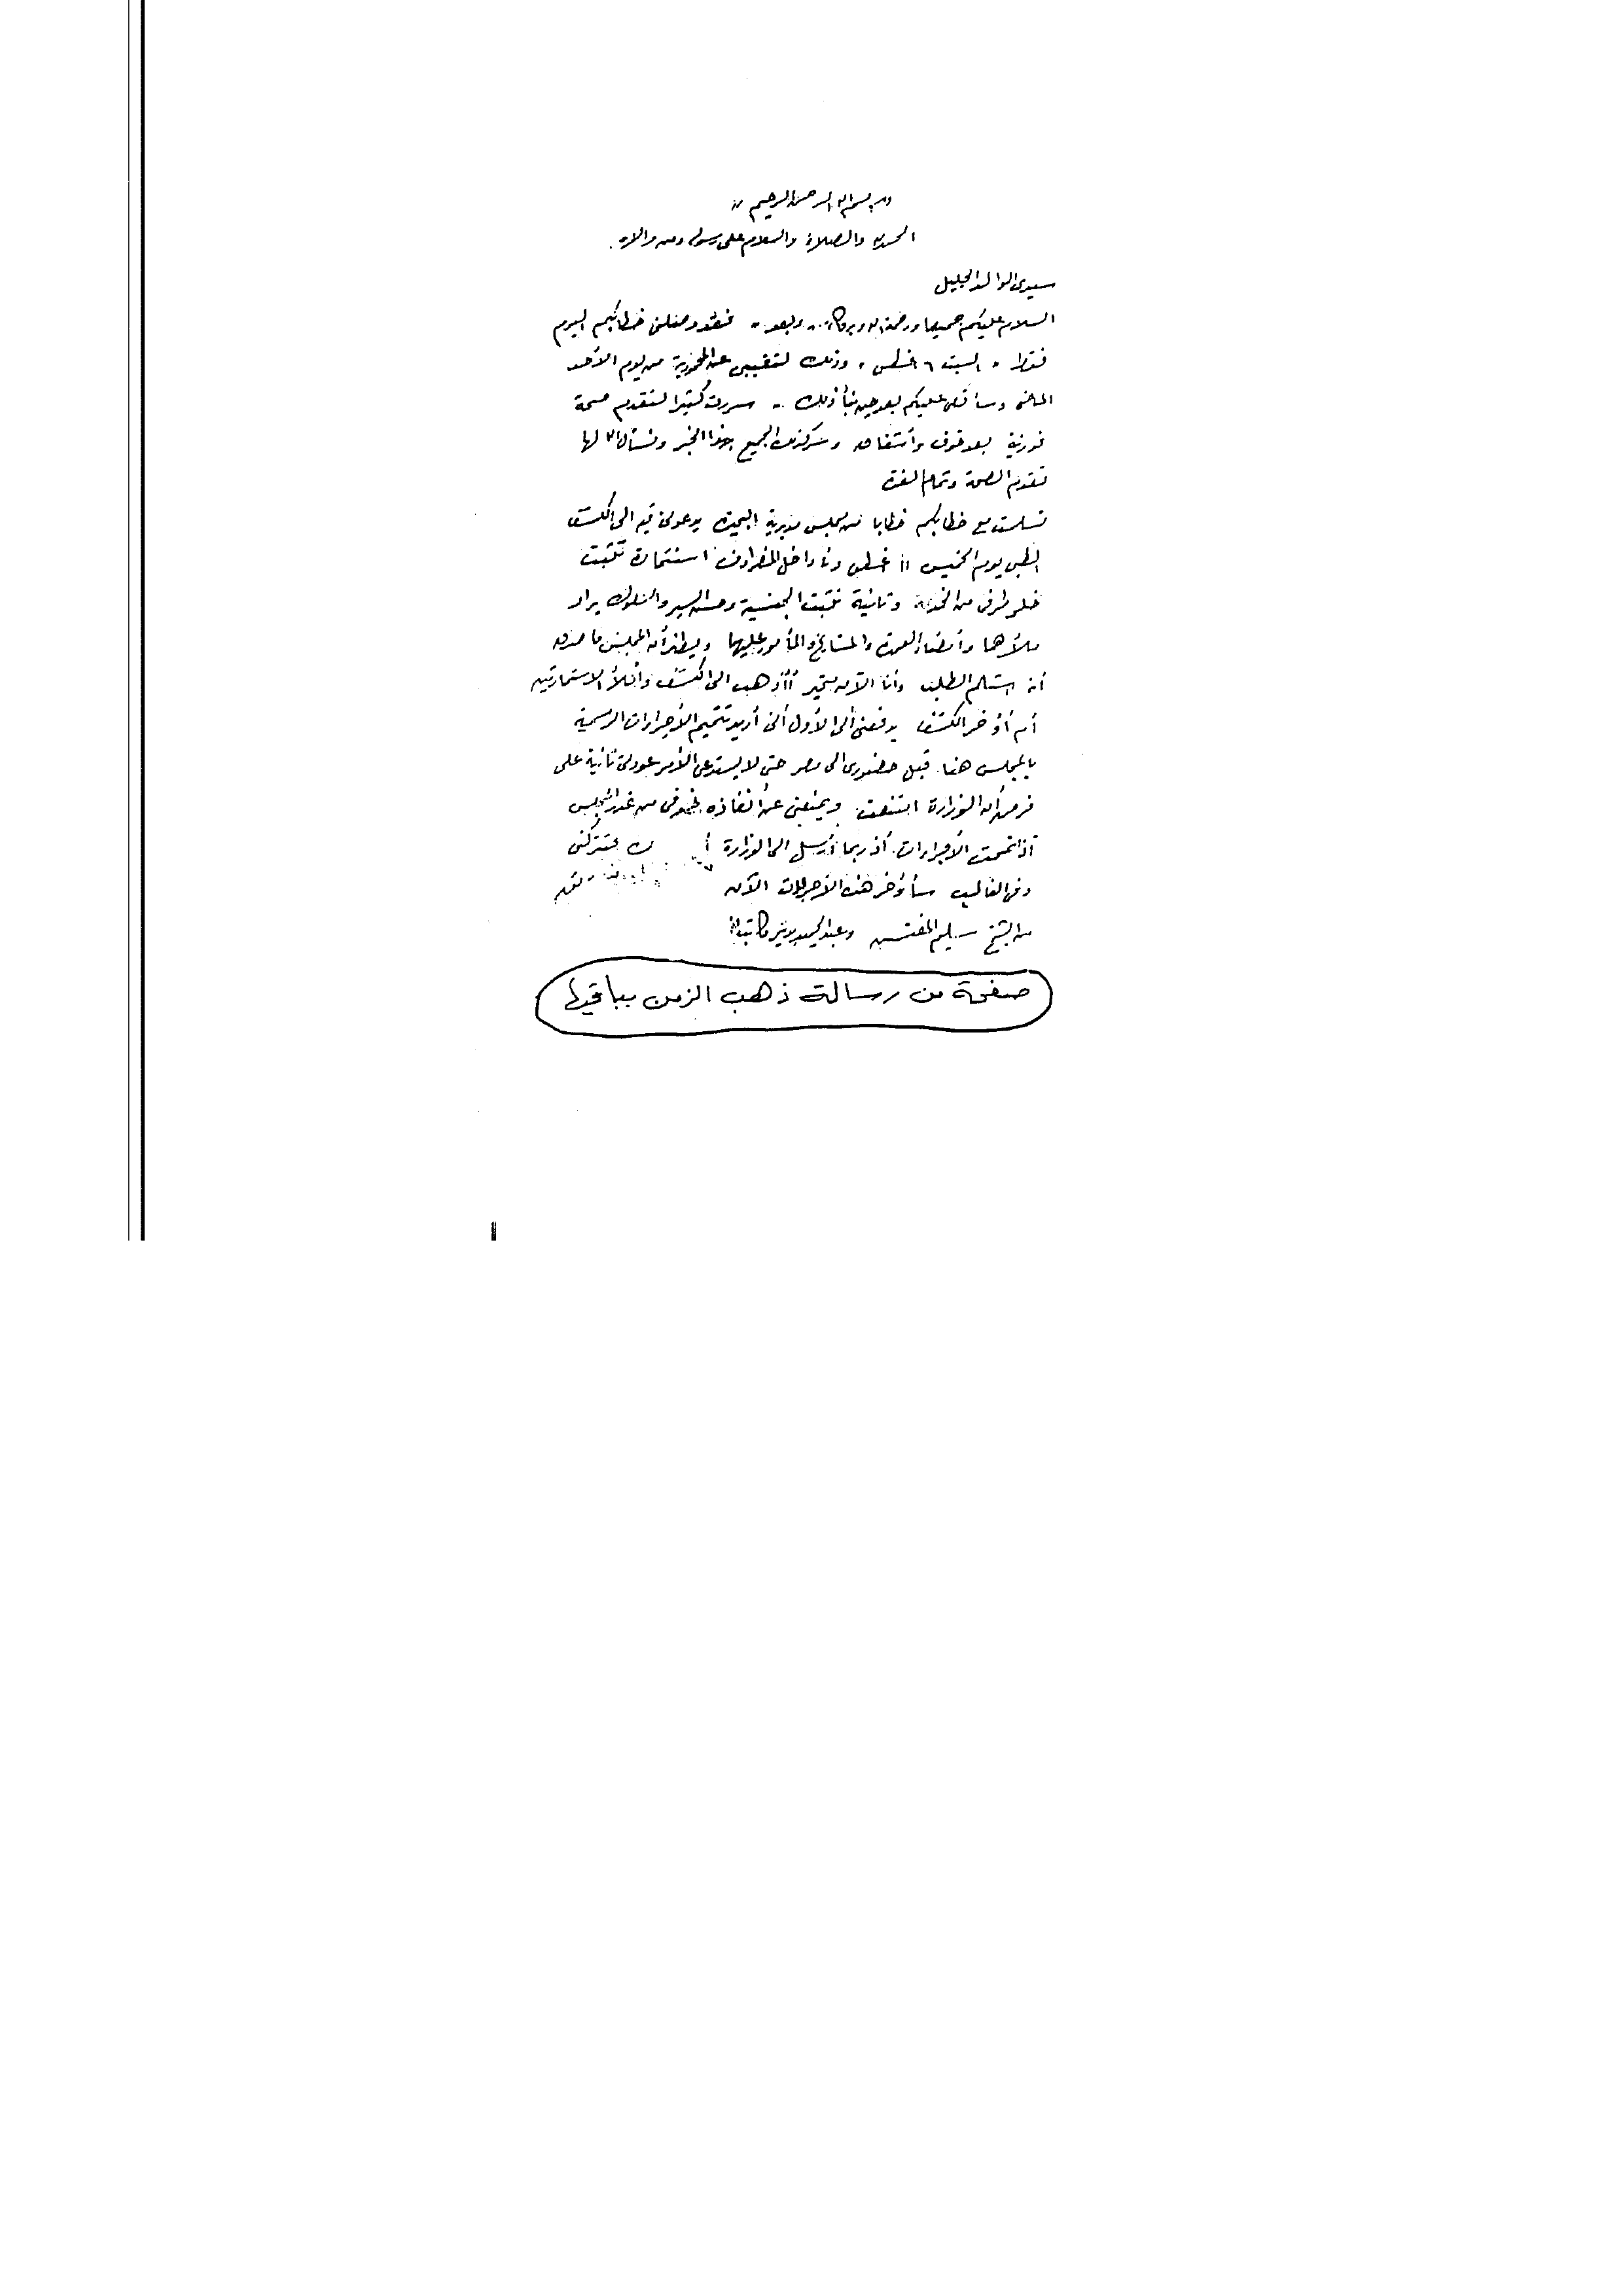 « بسم الله الرحمن الرحيم »
الحمد لله والصلاة والسلام على رسول الله ومن والاه .
سيدي الوالد الجليل
السلام عليكم جميعا ورحمة الله وبركاته .. وبعد .. فقد وصلني خطابكم اليوم
فقط " السبت ٦ أغسطس " وذلك لتغيبي عن المحمودية من يوم الأحد
الماضي وسأقص عليكم بعد حين نبأ ذلك .. سررت كثيرا لتقدم صحة
فوزية بعد خوف وأشفاق وسر كذلك الجميع بهذا الخبر ونسأل الله لها
تقدم الصحة وتمام
تسلمت مع خطابكم خطابا من مجلس مديرية البحيرة يدعوني فيه الى الكشف
الطبي يوم الخميس ١١ أغسطس وبداخل المظروف استمارة تثبت
خلو طرفي من الخدمة وثانية تثبت الجنسية وحسن السير والسلوك يراد
ملأهما وأمضاء العمدة والمشايخ والمأمور عليهما ويظهر أن المجلس ما صدق
أن استلم الطلب وأنا الآن متحير أأذهب الى الكشف وأملأ الاستمارتين
أم أؤخر الكشف يدفعني الى الأول أني أريد تتميم الأجراءات الرسمية
بالمجلس هنا قبل حضوري الى مصر حتى لا يستدعي الأمر عودتي ثانية على
فرض أن الوزارة امتنعت ويمنعني عن أنفاذه خوفي من غدر المجلس
أذا تممت الأجراءات أذ ربما أرسل الى الوزارة
وفي الغالب سأؤخر هذه الأجراءات الآن
من الشيخ سليم المفتش وعبد الحميد
صفحة من رسالة ذهب الزمن بباقيها